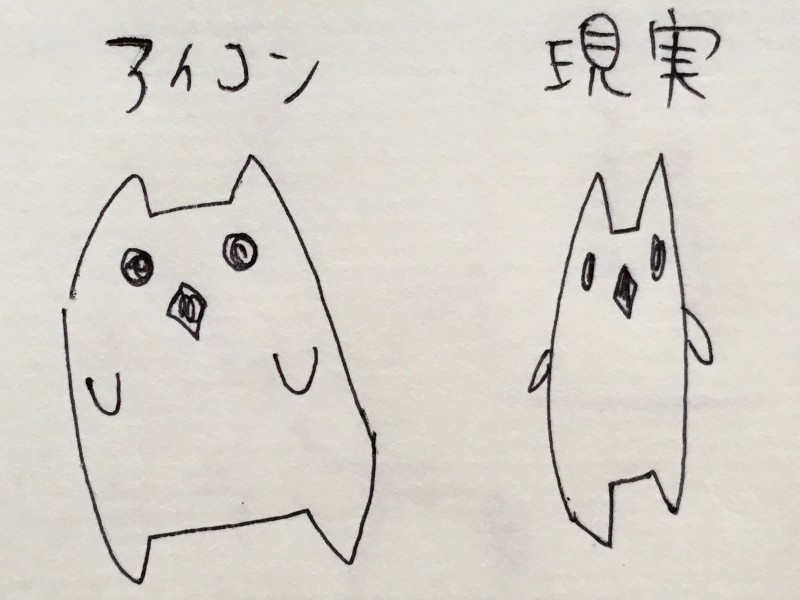 アイコン
現実